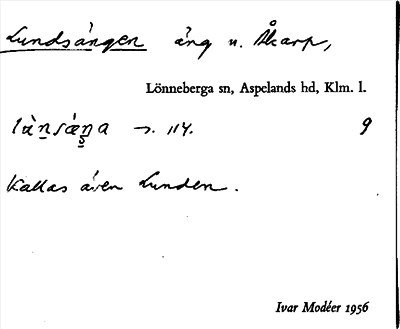 Lundsängen äng u. Åkarp,
Lönneberga sn, Aspelands hd, Klm. l.
114. 9
Kallas även Lunden.
Ivar Modéer 1956